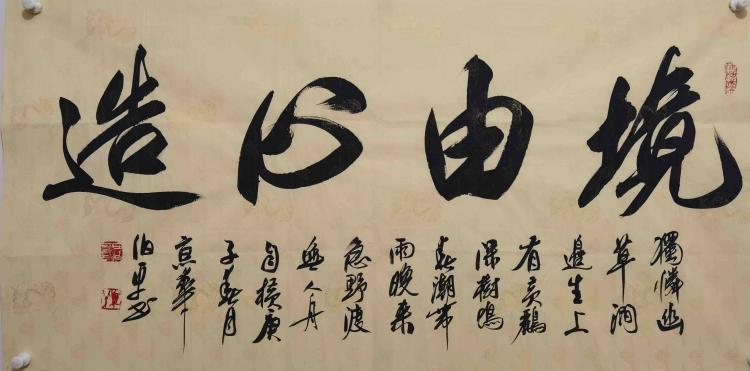 境由心造
獨憐幽
草澗
邊生上
有黃鸝
深樹鳴
春潮帶
雨晚来
急野渡
無人舟
自橫庚
子春月
京華
伯书